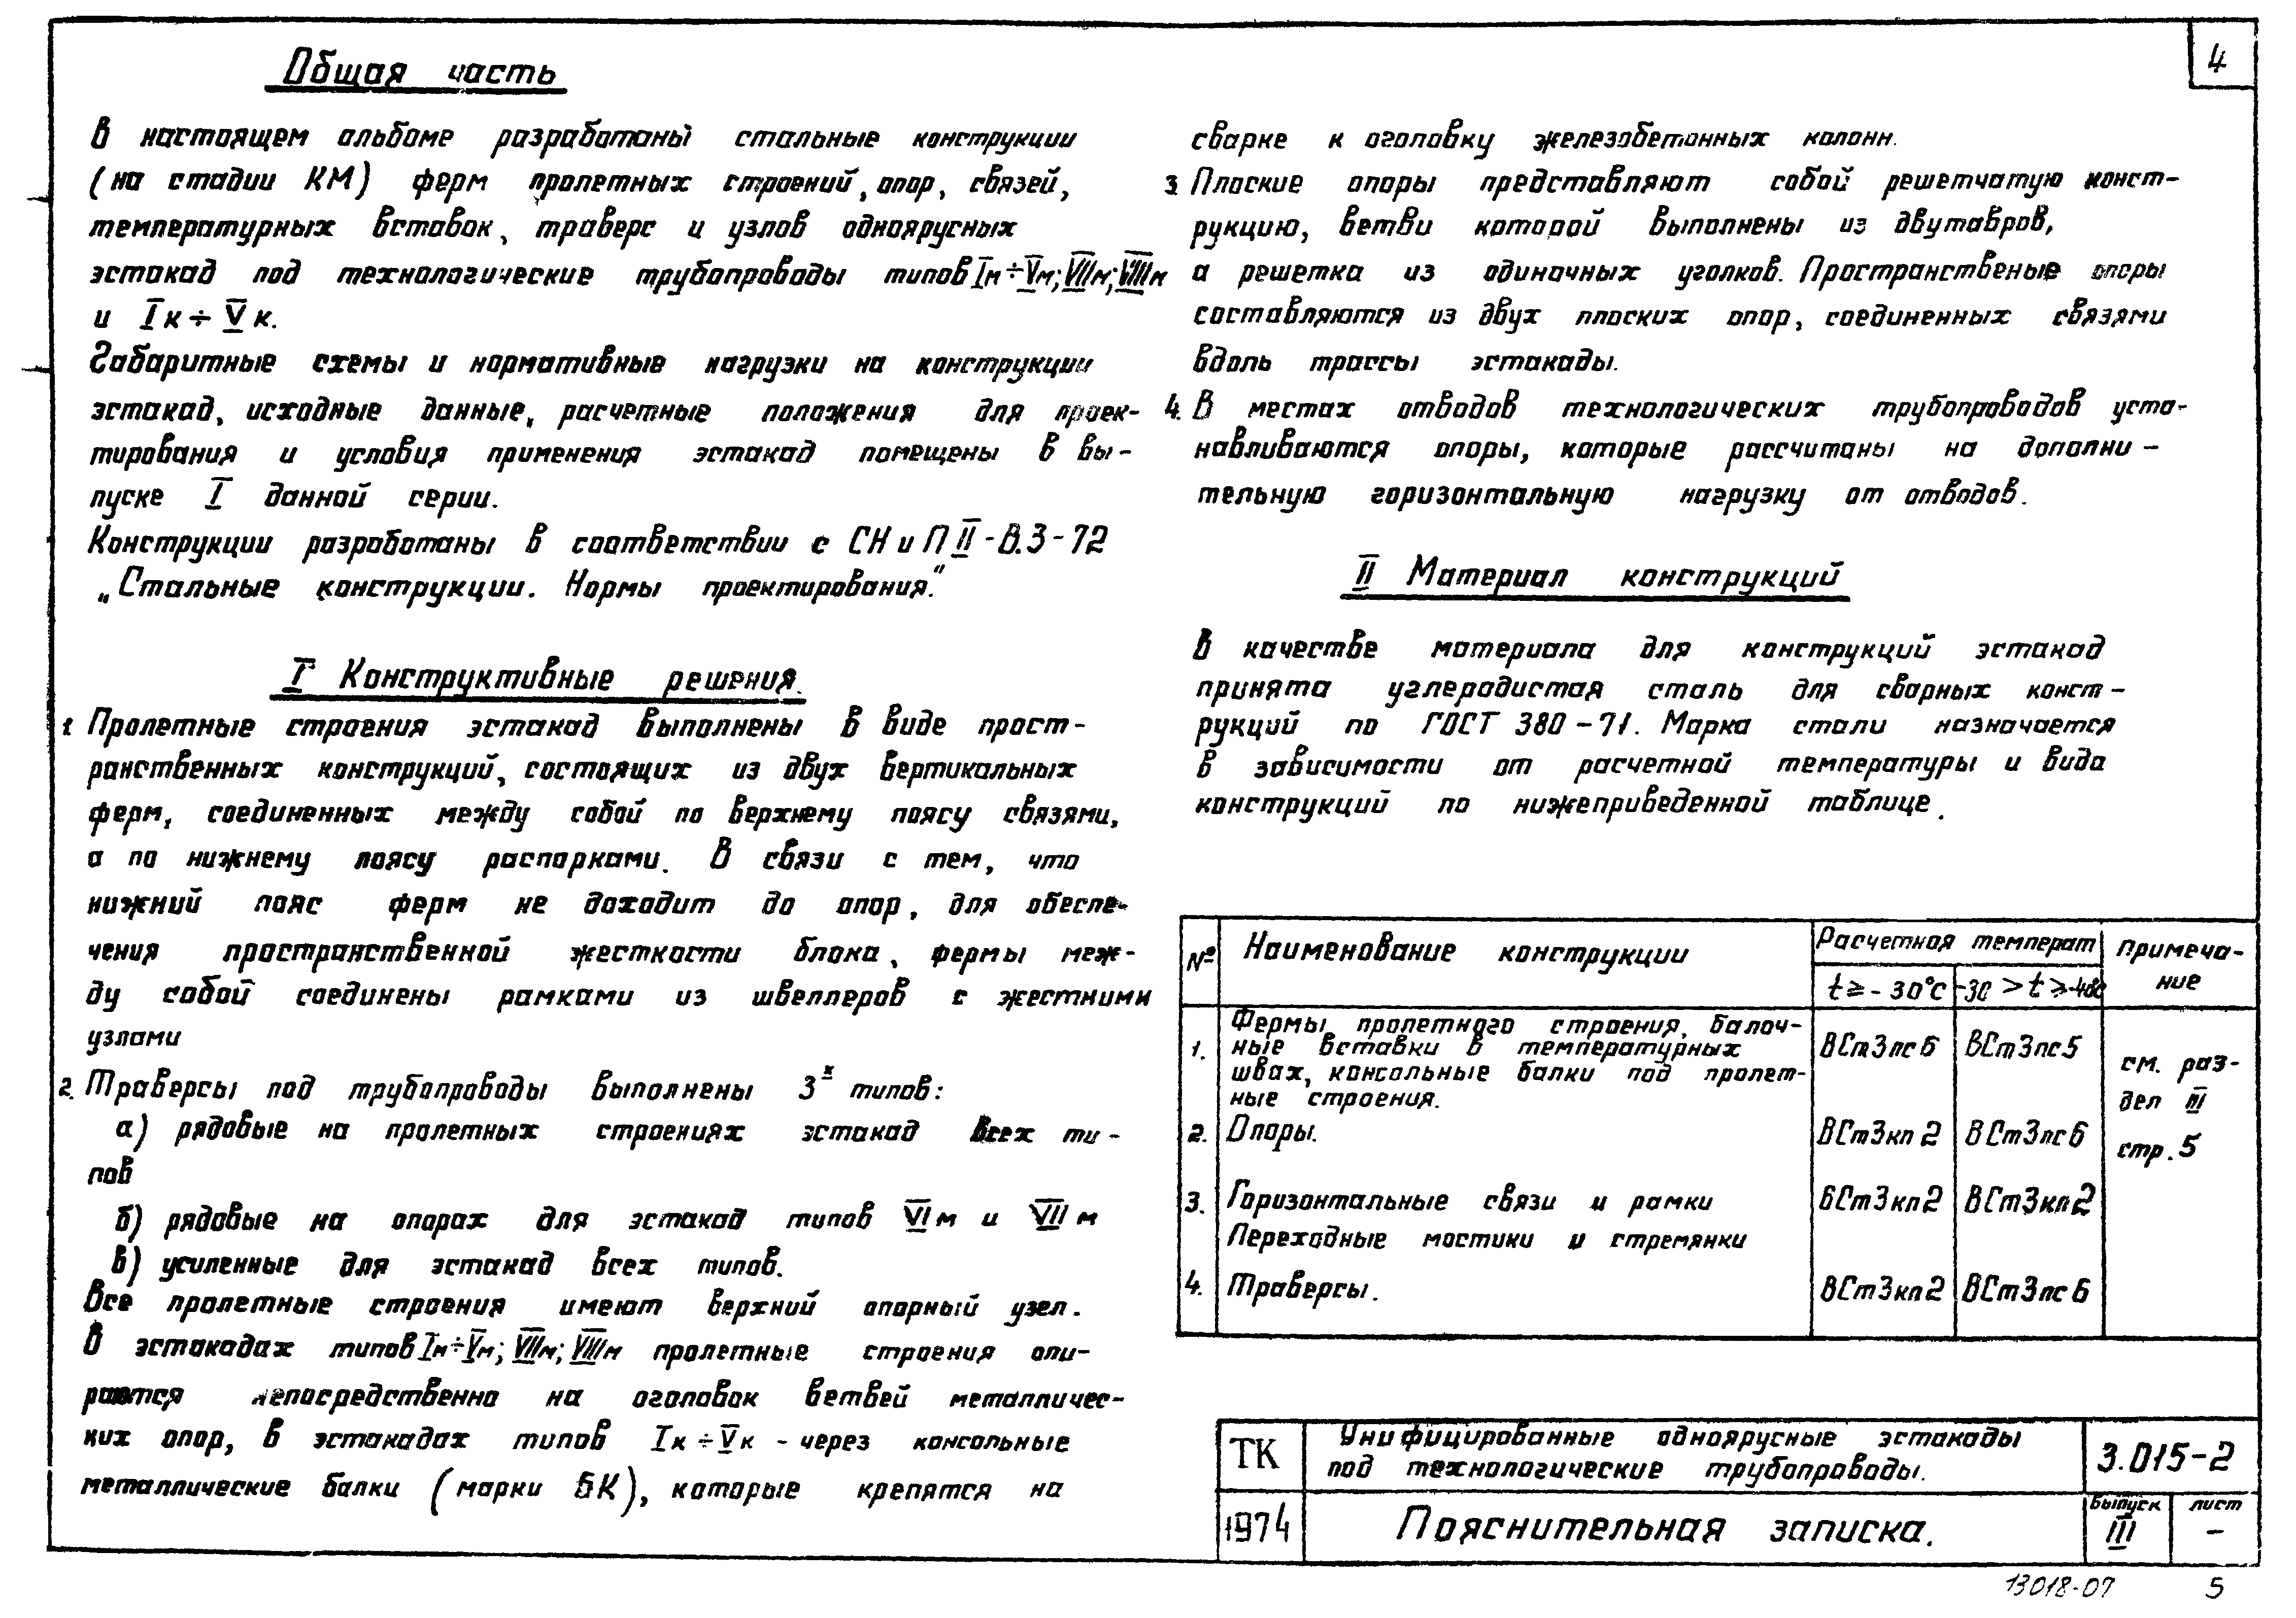 4
Общая часть
В настоящем альбоме разработаны стальные конструкции
(на стадии КМ) ферм пролетных строений, опор, связей,
температурных вставок, траверс и узлов одноярусных
эстакад под технологические трубопроводы типов Iм÷Vм; VIIм; VIIIм
и Iк÷Vк.
Габаритные схемы и нормативные нагрузки на конструкции
эстакад, исходные данные, расчетные положения для проек-
тирования и условия применения эстакад помещены в вы-
пуске I данной серии.
Конструкции разработаны в соответствии с СНиП II-В.3-72
„Стальные конструкции. Нормы проектирования."
I Конструктивные решения.
1. Пролетные строения эстакад выполнены в виде прост-
ранственных конструкций, состоящих из двух вертикальных
ферм, соединенных между собой по верхнему поясу связями,
а по нижнему поясу распорками. В связи с тем, что
нижний пояс ферм не доходит до опор, для обеспе-
чения пространственной жесткости блока, фермы меж-
ду собой соединены рамками из швеллеров с жестними
узлами
2. Траверсы под трубопроводы выполнены 3х типов:
а) рядовые на пролетных строениях эстакад всех ти-
пов
б) рядовые на опорах для эстакад типов VIм и VIIм
в) усиленные для эстакад всех типов.
Все пролетные строения имеют верхний опорный узел.
В эстакадах типов Iм÷Vм; VIIм; VIIIм пролетные строения опи-
раются непосредственно на оголовок ветвей металличес-
ких опор, в эстакадах типов Iк÷Vк - через консольные
металлические балки (марки БК), которые крепятся на
сварке к оголовку железобетонных колонн.
3. Плоские опоры представляют собой решетчатую конст-
рукцию, ветви которой выполнены из двутавров,
а решетка из одиночных уголков. Пространственые опоры
составляются из двух плоских опор, соединенных связями
вдоль трассы эстакады.
4. В местах отводов технологических трубопроводов уста-
навливаются опоры, которые рассчитаны на дополни-
тельную горизонтальную нагрузку от отводов.
II Материал конструкций
В качестве материала для конструкций эстакад
принята углеродистая сталь для сварных конст-
рукций по ГОСТ 380-71. Марка стали назначается
в зависимости от расчетной температуры и вида
конструкций по нижеприведенной таблице.
№ Наименование конструкции Расчетная температ Примеча-
ние
t≥-30°С -30>t≥-40°С
1. Фермы пролетного строения, балоч- ВСт3пс6 ВСт3пс5
ные вставки в температурных
швах, консольные балки под пролет-
ные строения.
см. раз-
дел III
стр. 5
2. Опоры. ВСт3кп2 ВСт3пс6
3. Горизонтальные связи и рамки ВСт3кп2 ВСт3кп2
Переходные мостики и стремянки
4. Траверсы. ВСт3кп2 ВСт3пс6
ТК Унифицированные одноярусные эстакады 3.015-2
под технологические трубопроводы.
1974 Пояснительная записка. Выпуск III лист -
13018-07 5